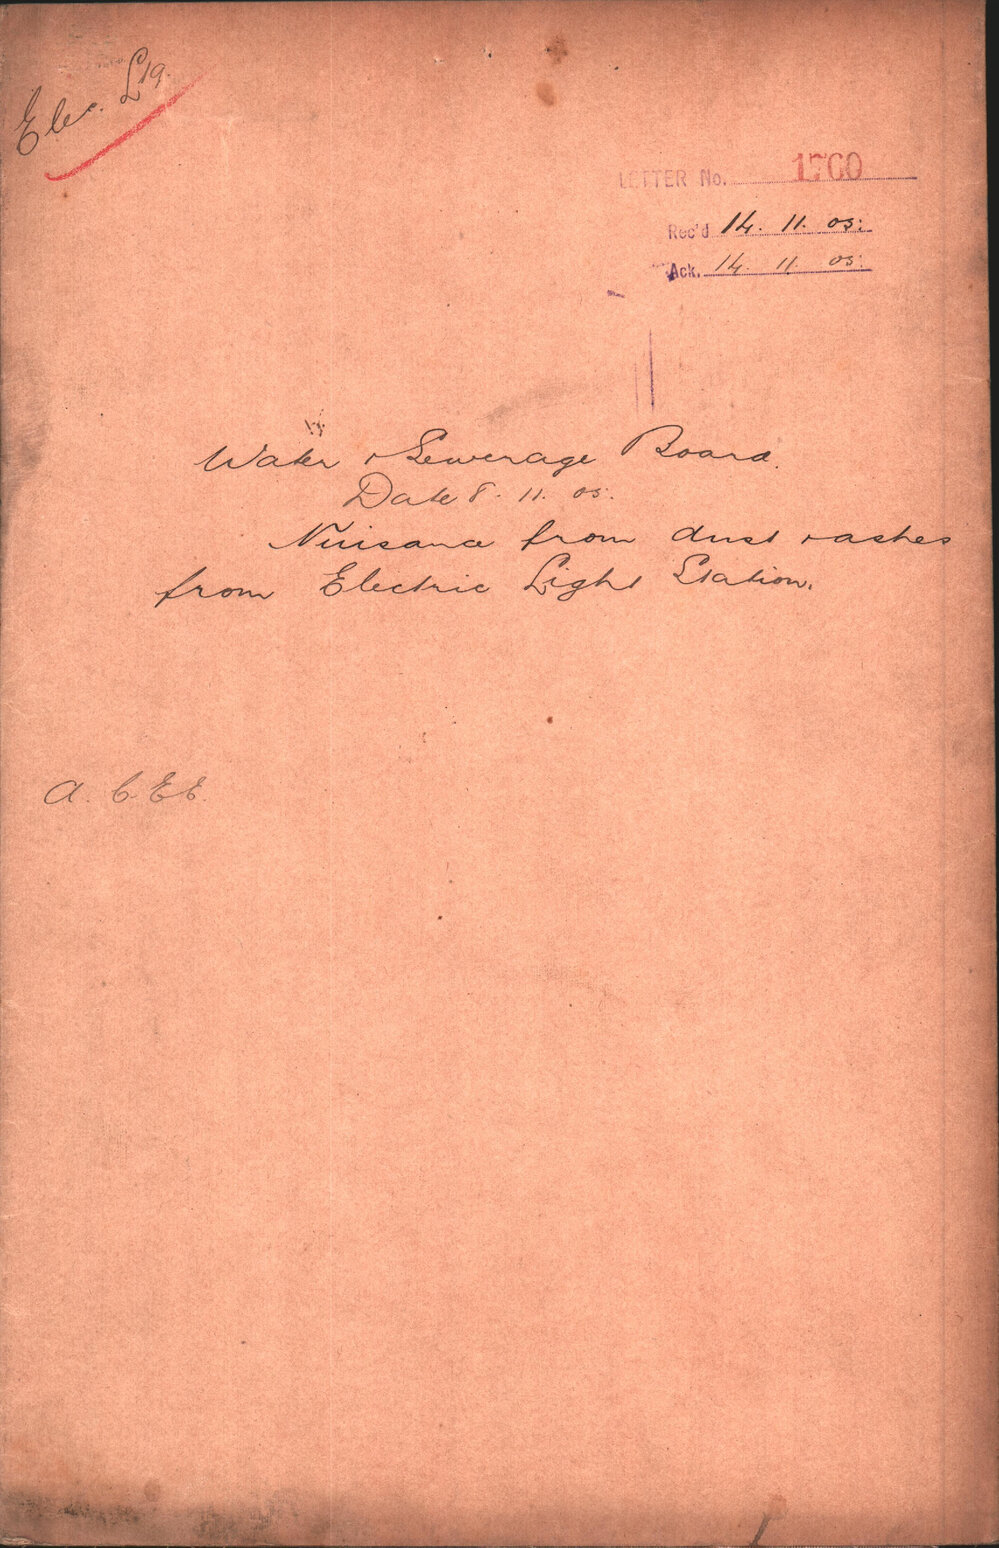 Elec. Ltg.
LETTER No. 1760
Rec'd 14. 11. 05.
Ack. 14 11 05.
Water & Sewerage Board.
Date 8. 11. 05.
Nuisance from dust & ashes
from Electric Light Station.
A. C. E E.